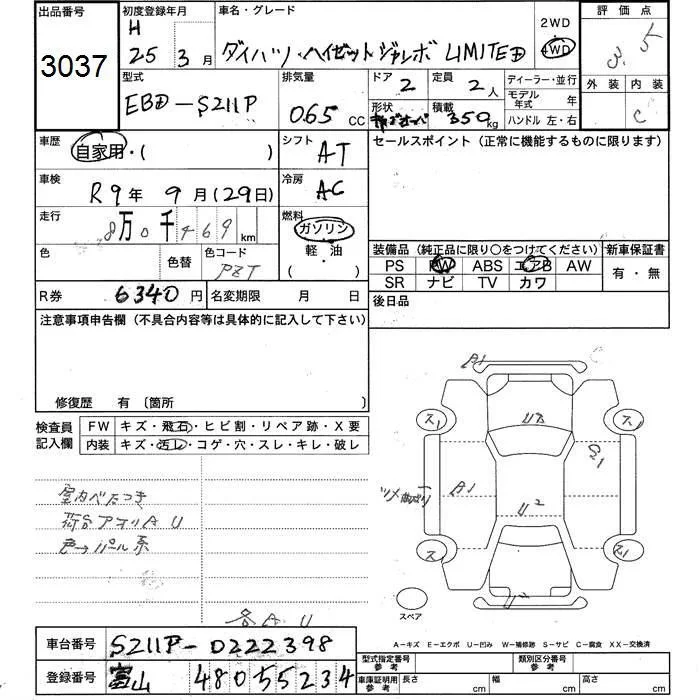 出品番号 初度登録年月 車名・グレード 2WD 評価点
3037 H 25 3月 ダイハツ・ハイゼットジャンボ LIMITED 4WD 3.5
型式 排気量 ドア 2 定員 2人 ディーラー・並行 外装 内装
EBD-S211P 065 CC 形状 積載 350kg モデル年式 年 C
ハンドル 左・右
車歴 自家用・( ) シフト AT セールスポイント(正常に機能するものに限ります)
車検 R9年 9月(29日) 冷房 AC
走行 8万0千469km 燃料 ガソリン
軽・油
( )
色 色替 色コード 装備品(純正品に限り○をつけてください) 新車保証書
PS PW ABS エアB AW 有・無
SR ナビ TV カワ
R券 6340円 名変期限 月 日 後日品
注意事項申告欄(不具合内容等は具体的に記入して下さい)
修復歴 有 〔箇所 〕
検査員記入欄 FW キズ・飛石・ヒビ割・リペア跡・X要
内装 キズ・汚レ・コゲ・穴・スレ・キレ・破レ
A1 C
ス1 U8 ス1
ツメ曲がり A1
U2
室内ベたつき
荷台アオリA U
色→パール系
ス1 ス1
U2
スペア
各A U
A-キズ E-エクボ U-凹み W-補修跡 S-サビ C-腐食 XX-交換済
車台番号 S211P-0222398
型式指定番号 参考 類別区分番号 参考
登録番号 富山 480 5 5234
車庫証明用 参考 長さ cm 幅 cm 高さ cm